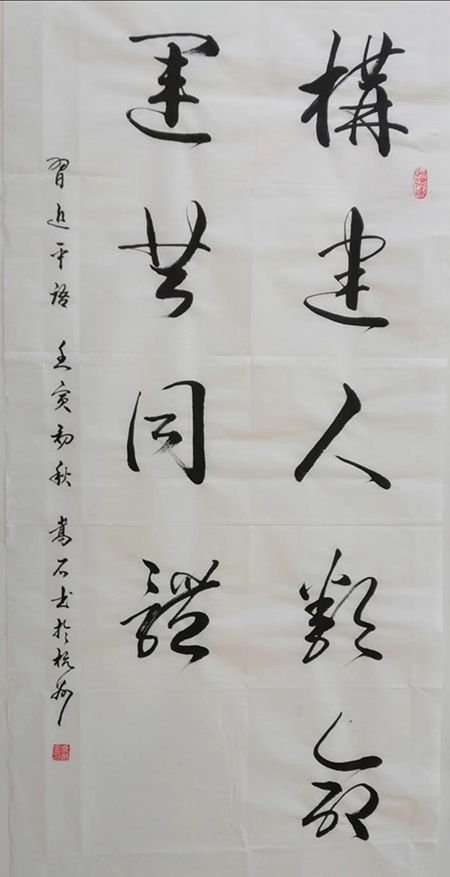 構建人類命
運共同體
習近平語 壬寅初秋 嵩石书於杭州